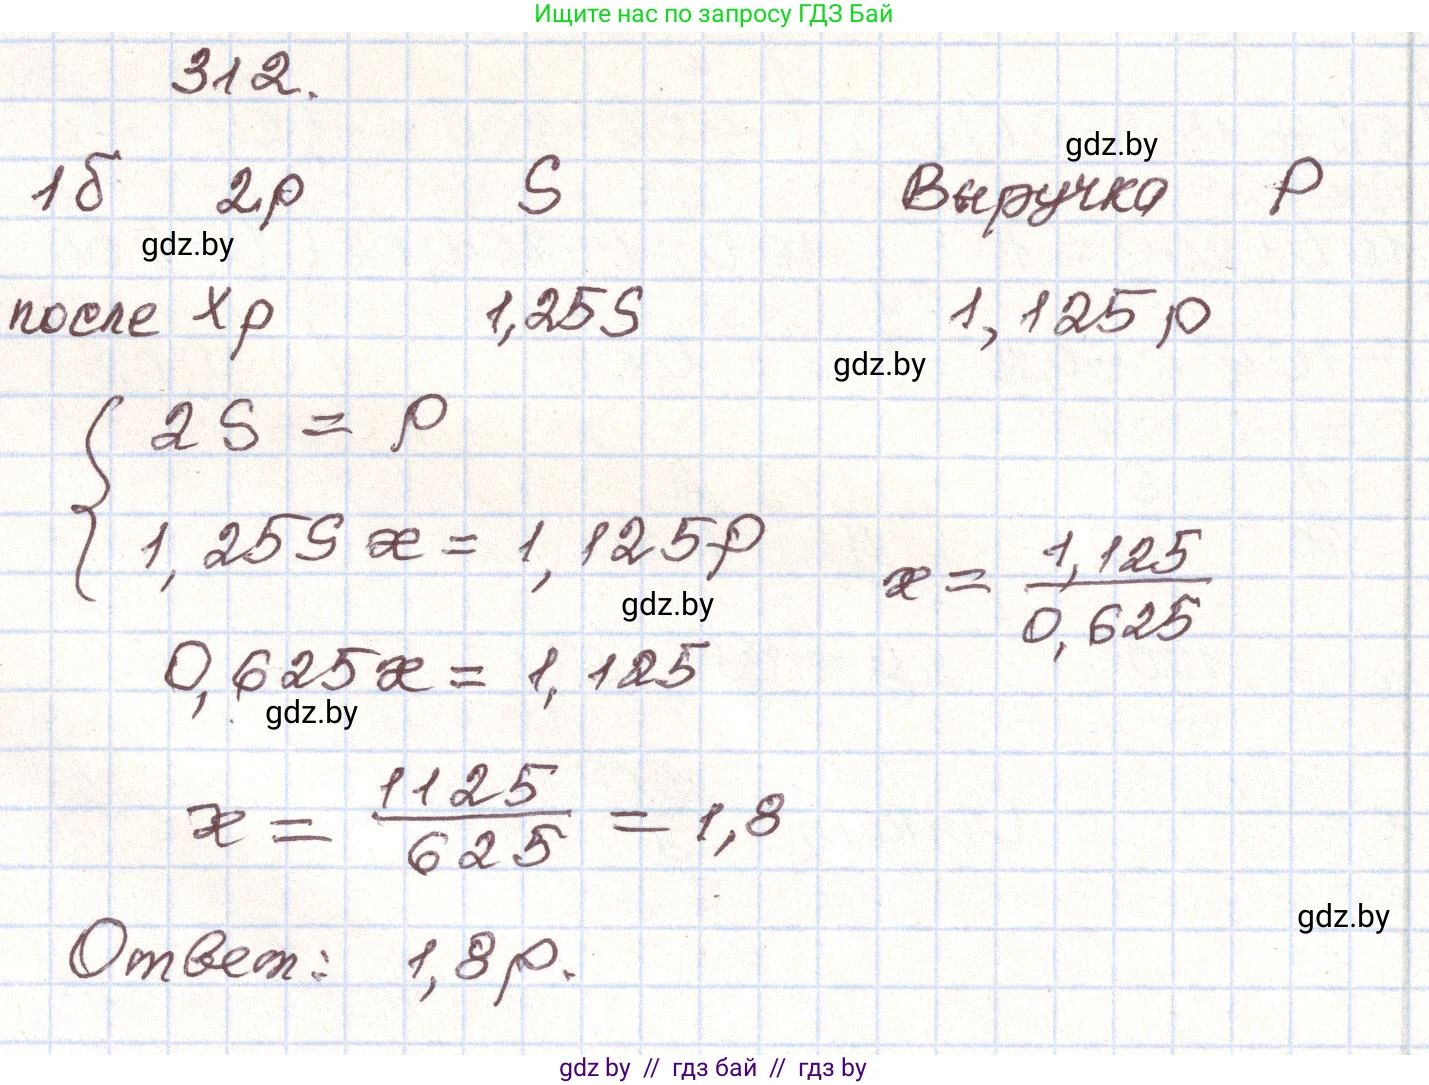 Ищите нас по запросу ГДЗ Бай
312.
gdz.by
1б 2р S Выручка P
gdz.by
после Xр 1,25S 1,125p
gdz.by
{ 2S = P
1,25S x = 1,125P
x = 1,125 / 0,625
gdz.by
0,625x = 1,125
gdz.by
x = 1125 / 625 = 1,8
gdz.by
Ответ: 1,8р.
gdz.by // гдз бай // гдз by